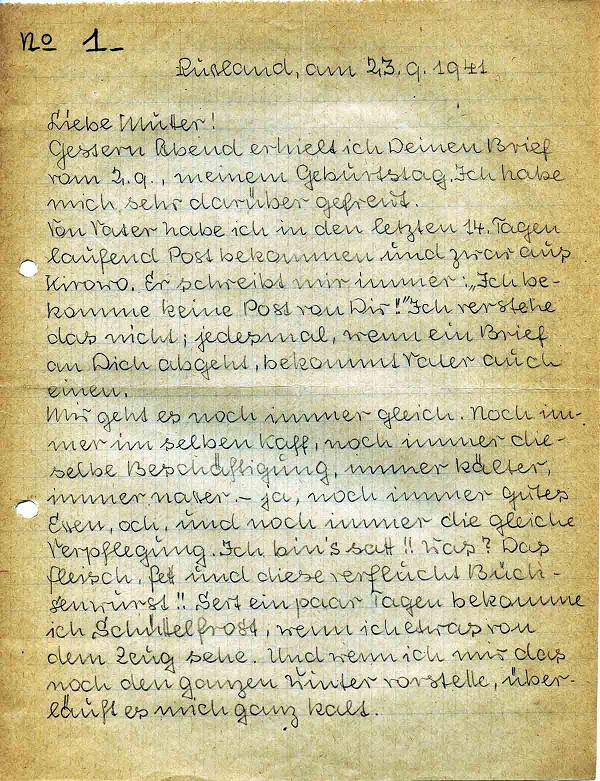 No 1.-
Rusland, am 23.9.1941
Liebe Mutter!
Gestern Abend erhielt ich Deinen Brief
vom 2.9., meinem Geburtstag. Ich habe
mich sehr darüber gefreut.
Von Vater habe ich in den letzten 14. Tagen
laufend Post bekommen und zwar aus
Kirowo. Er schreibt mir immer: „Ich be-
komme keine Post von Dir!" Ich verstehe
das nicht; jedesmal, wenn ein Brief
an Dich abgeht, bekommt Vater auch
einen.
Mir geht es noch immer gleich. Noch im-
mer im selben Kaff, noch immer die-
selbe Beschäftigung, immer kälter,
immer naser. - ja, noch immer gutes
Essen, och, und noch immer die gleiche
Verpflegung. Ich bin's satt!! Was? Das
Fleisch, Fet und diese verflucht Büch-
senwurst!! Seit ein paar Tagen bekomme
ich Schüttelfrost, wenn ich etwas von
dem Zeug sehe. Und wenn ich mir das
noch den ganzen Winter vorstelle, über-
läuft es mich ganz kalt.